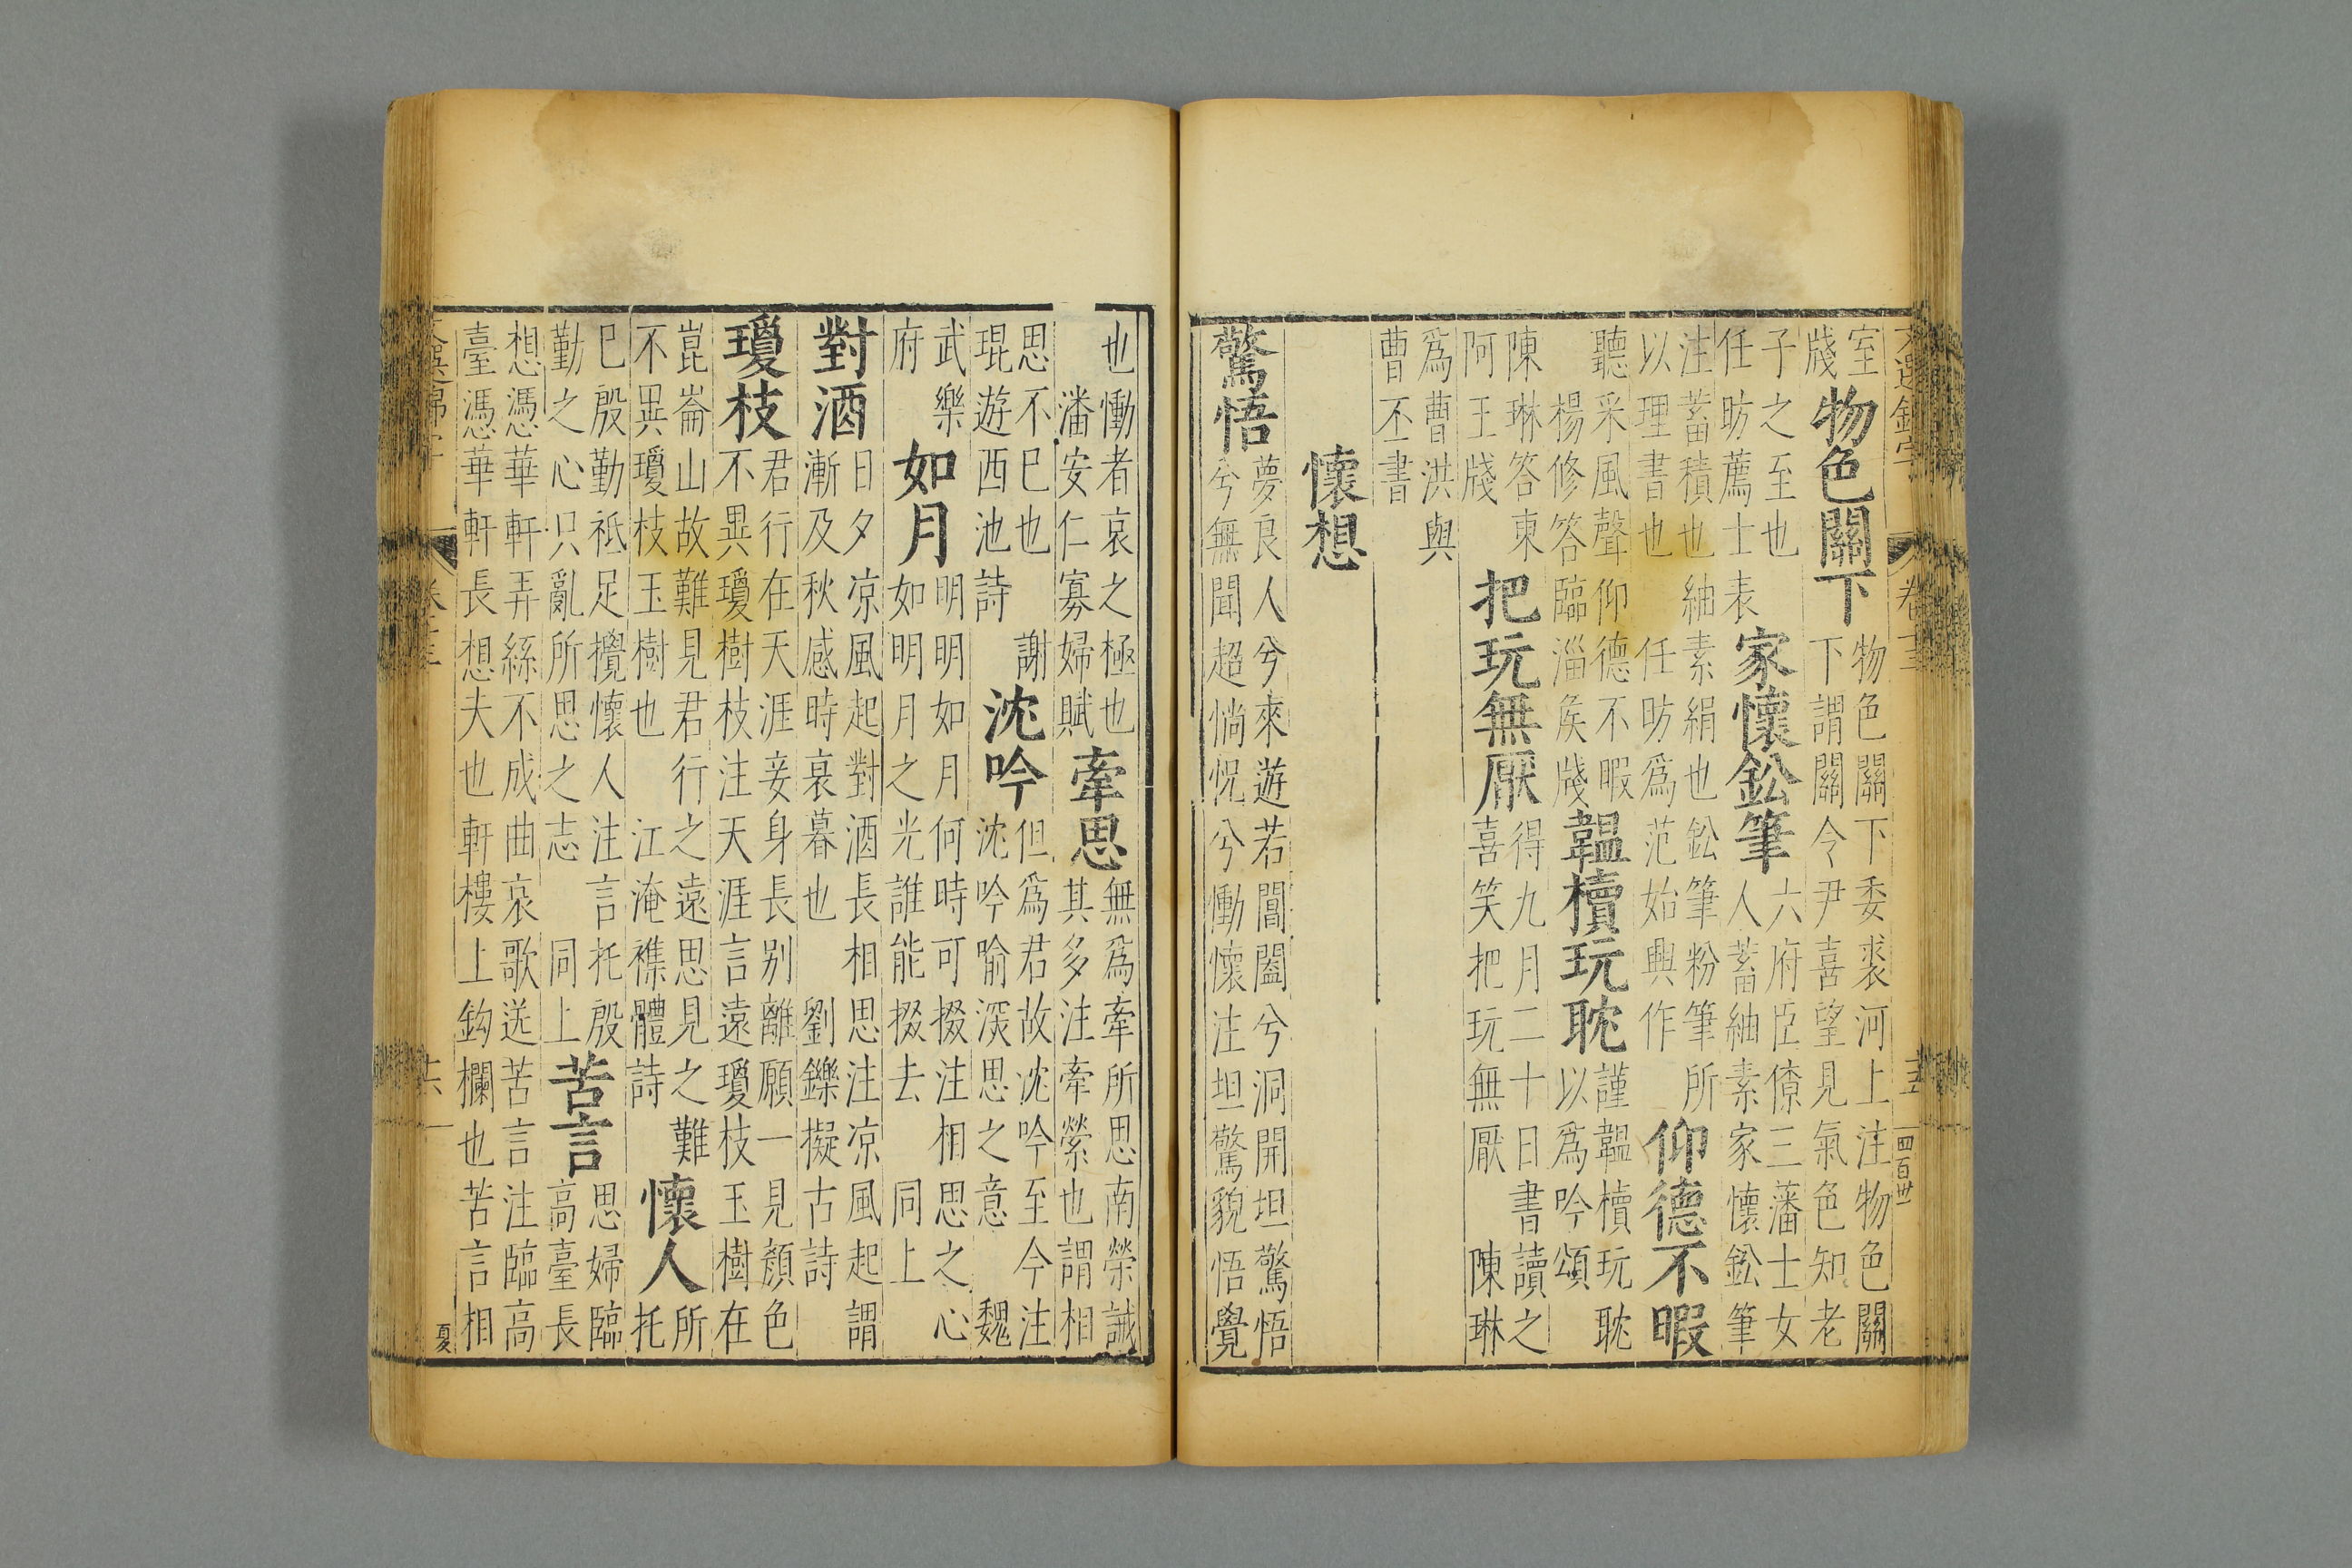 室 物色關下 物色關下委裘河上注物色關
牋 下謂關令尹喜望見氣色知老
子之至也 家懷鈆筆 六府臣僚三藩士女
任昉薦士表 人蓄紬素家懷鈆筆
注蓄積也紬素絹也鈆筆粉筆所 仰德不暇
以理書也 任昉爲范始興作
聽采風聲仰德不暇 韞櫝玩耽 謹韞櫝玩耽
楊修答臨淄矦牋 以爲吟頌
陳琳答東 把玩無厭 得九月二十日書讀之
阿王牋 喜笑把玩無厭 陳琳
爲曹洪與
曹丕書
懷想
驚悟 夢良人兮來遊若閶闔兮洞開坦驚悟
兮無聞超惝怳兮慟懷注坦驚貌悟覺
文選錦字 卷十三 十五 四百卅
也慟者哀之極也 牽思 無爲牽所思南榮誡
潘安仁寡婦賦 其多注牽縈也謂相
思不已也 謝 沈吟 但爲君故沈吟至今注
琨遊西池詩 沈吟喻深思之意 魏
武樂 如月 明明如月何時可掇注相思之心
府 如明月之光誰能掇去 同上
對酒 日夕凉風起對酒長相思注凉風起謂
漸及秋感時哀暮也 劉鑠擬古詩
瓊枝 君行在天涯妾身長别離願一見顏色
不異瓊樹枝注天涯言遠瓊枝玉樹在
崑崙山故難見君行之遠思見之難 懷人 所
不異瓊枝玉樹也 江淹襍體詩 托
已殷勤祗足攪懷人注言托殷 苦言 思婦臨
勤之心只亂所思之志 同上 高臺長
想憑華軒弄絲不成曲哀歌送苦言注臨高
臺憑華軒長想夫也軒樓上鈎欄也苦言相
十六
夏